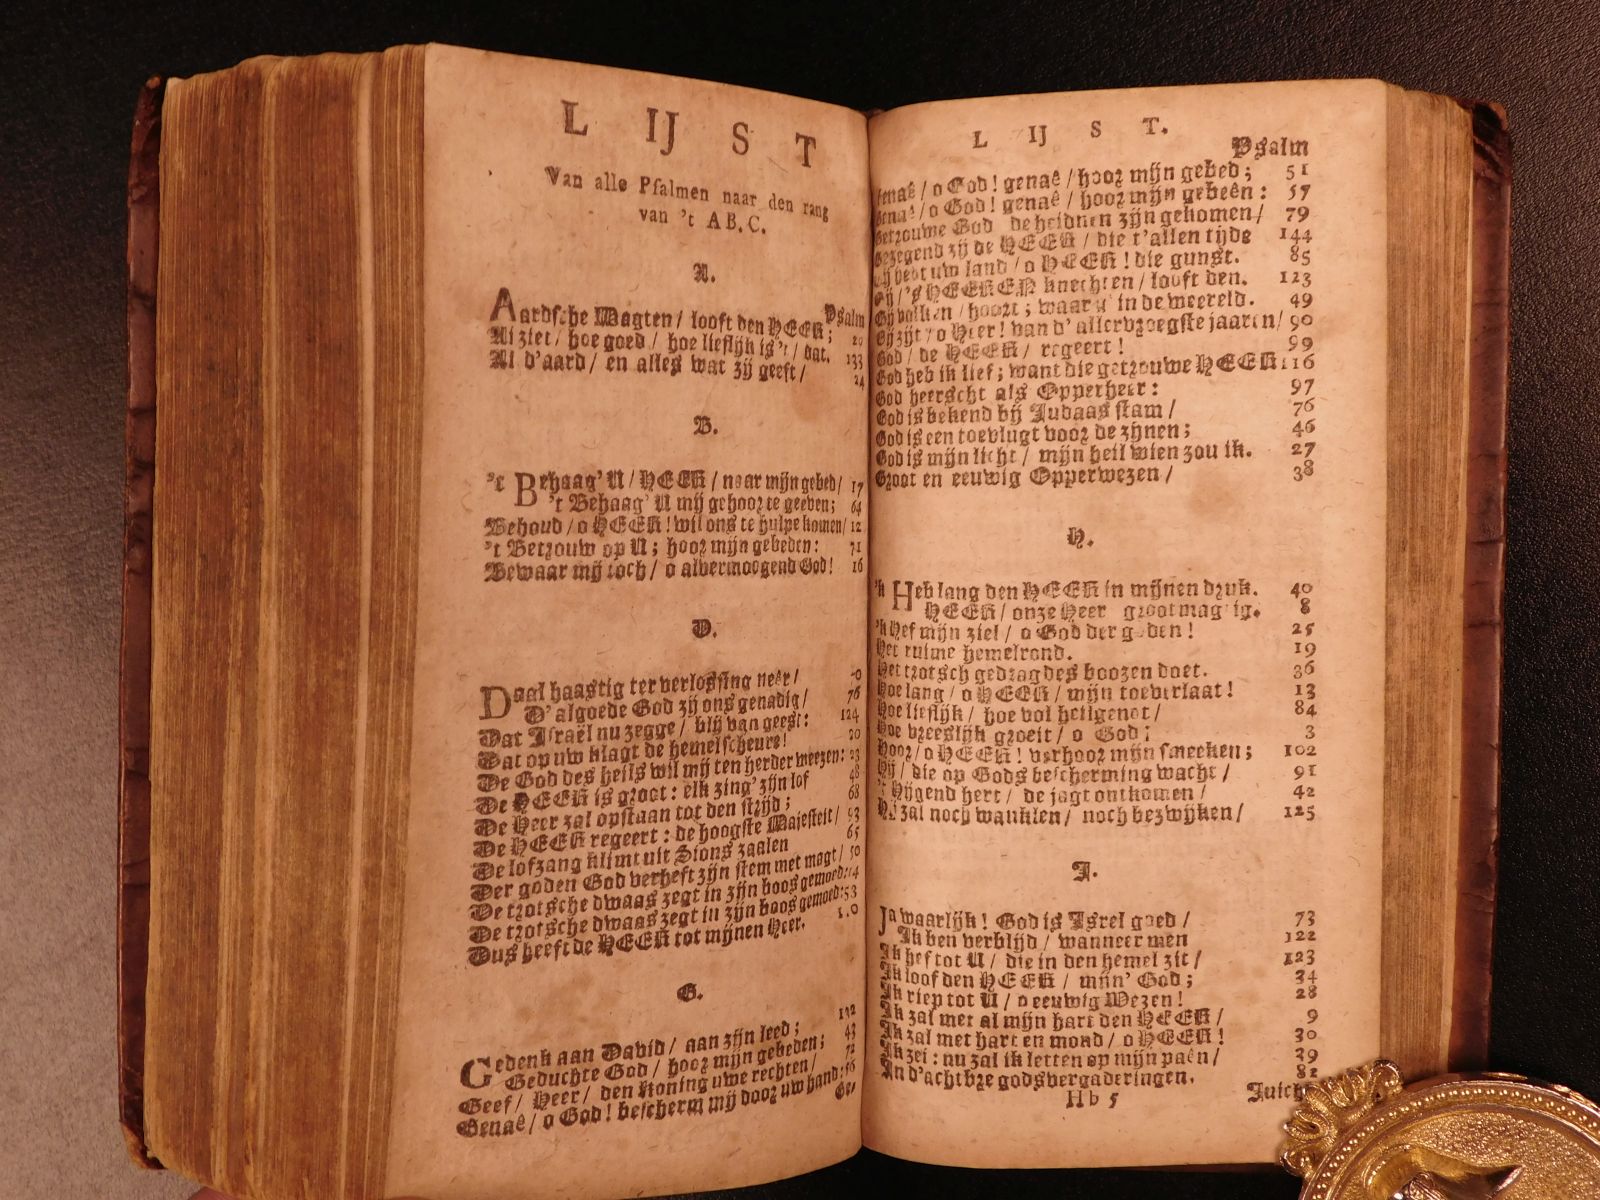 LIJST
Van alle Psalmen naar den rang
van 't AB.C.
A.
Psalm
Aardsche Magten / looft den HEER;
Ai ziet / hoe goed / hoe lieflijk is 't / dat. 133
Al d'aard / en alles wat zij geeft / 24
B.
't Behaag' U / HEER / naar mijn gebed / 17
't Behaag' U mij gehoor te geeven; 64
Behoud / o HEER! wil ons te hulpe komen / 12
't Betrouw op U; hoor mijn gebeden: 71
Bewaar mij toch / o alvermoogend God! 16
D.
Daal haastig ter verlossing neêr /
D'algoede God zij ons genadig / 76
Dat Israël nu zegge / blij van geest: 124
Dat op uw klagt de hemel scheure! 20
De God des heils wil mij ten herder weezen: 23
De HEER is groot: elk zing' zijn lof 48
De Heer zal opstaan tot den strijd; 68
De HEER regeert: de hoogste Majesteit / 93
De lofzang klimt uit Sions zaalen 65
Der goden God verheft zijn stem met magt / 50
De trotsche dwaas zegt in zijn boos gemoed: 14
De trotsche dwaas zegt in zijn boos gemoed: 53
Dus heeft de HEER tot mijnen Heer. 110
G.
Gedenk aan David / aan zijn leed; 132
Geduchte God / hoor mijn gebeden; 43
Geef / Heer / den Koning uwe rechten / 72
Genaê / o God! bescherm mij door uw hand; 56
Ge-
LIJST.
Psalm
Genaê / o God! genaê / hoor mijn gebed; 51
Genaê / o God! genaê / hoor mijn gebeên: 57
Getrouwe God de heidnen zijn gekomen / 79
Gezegend zij de HEER / die t'allen tijde 144
Gij hebt uw land / o HEER! die gunst. 85
Gij / 's HEEREN knechten / looft den. 123
Gij volken / hoort; waar g' in de weereld. 49
Gij zijt / o Heer! van d' allervroegste jaaren / 90
God / de HEER / regeert! 99
God heb ik lief; want die getrouwe HEER 116
God heerscht als Opperheer: 97
God is bekend bij Judaas stam / 76
God is een toevlugt voor de zijnen; 46
God is mijn licht / mijn heil wien zou ik. 27
Groot en eeuwig Opperwezen / 38
H.
'k Heb lang den HEER in mijnen druk. 40
HEER / onze Heer grootmagtig. 8
'k Hef mijn ziel / o God der goden! 25
Het ruime hemelrond. 19
Het trotsch gedrag des boozen doet. 36
Hoe lang / o HEER / mijn toeverlaat! 13
Hoe lieflijk / hoe vol heilgenot / 84
Hoe vreeslijk groeit / o God; 3
Hoor / o HEER! verhoor mijn smeeken; 102
Hij / die op Gods bescherming wacht / 91
't Hijgend hert / de jagt ontkomen / 42
Hij zal noch wanklen / noch bezwijken / 125
I.
Ja waarlijk! God is Isrel goed / 73
Ik ben verblijd / wanneer men 122
Ik hef tot U / die in den hemel zit / 123
Ik loof den HEER / mijn' God; 34
Ik riep tot U / o eeuwig Wezen! 28
Ik zal met al mijn hart den HEER / 9
Ik zal met hart en mond / o HEER! 30
Ik zei: nu zal ik letten op mijn paên / 39
In d'achtbre godsvergaderingen. 82
Hh 5
Juich